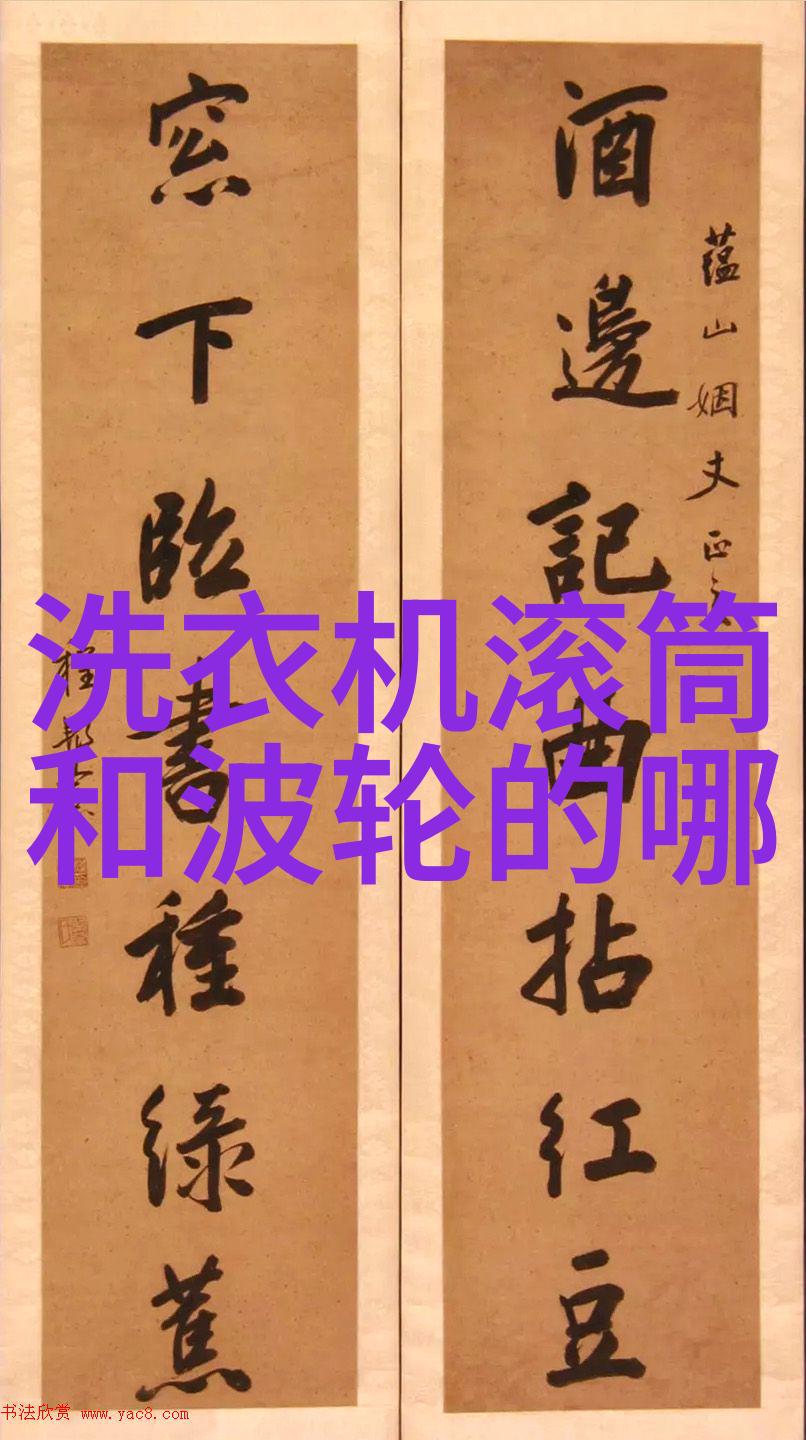 酒邊記曲拈紅豆
窓下臨書種綠蕉
蘊山姻丈正之
程
洗衣机滚筒
和波轮的哪
书法欣赏 www.yac8.com